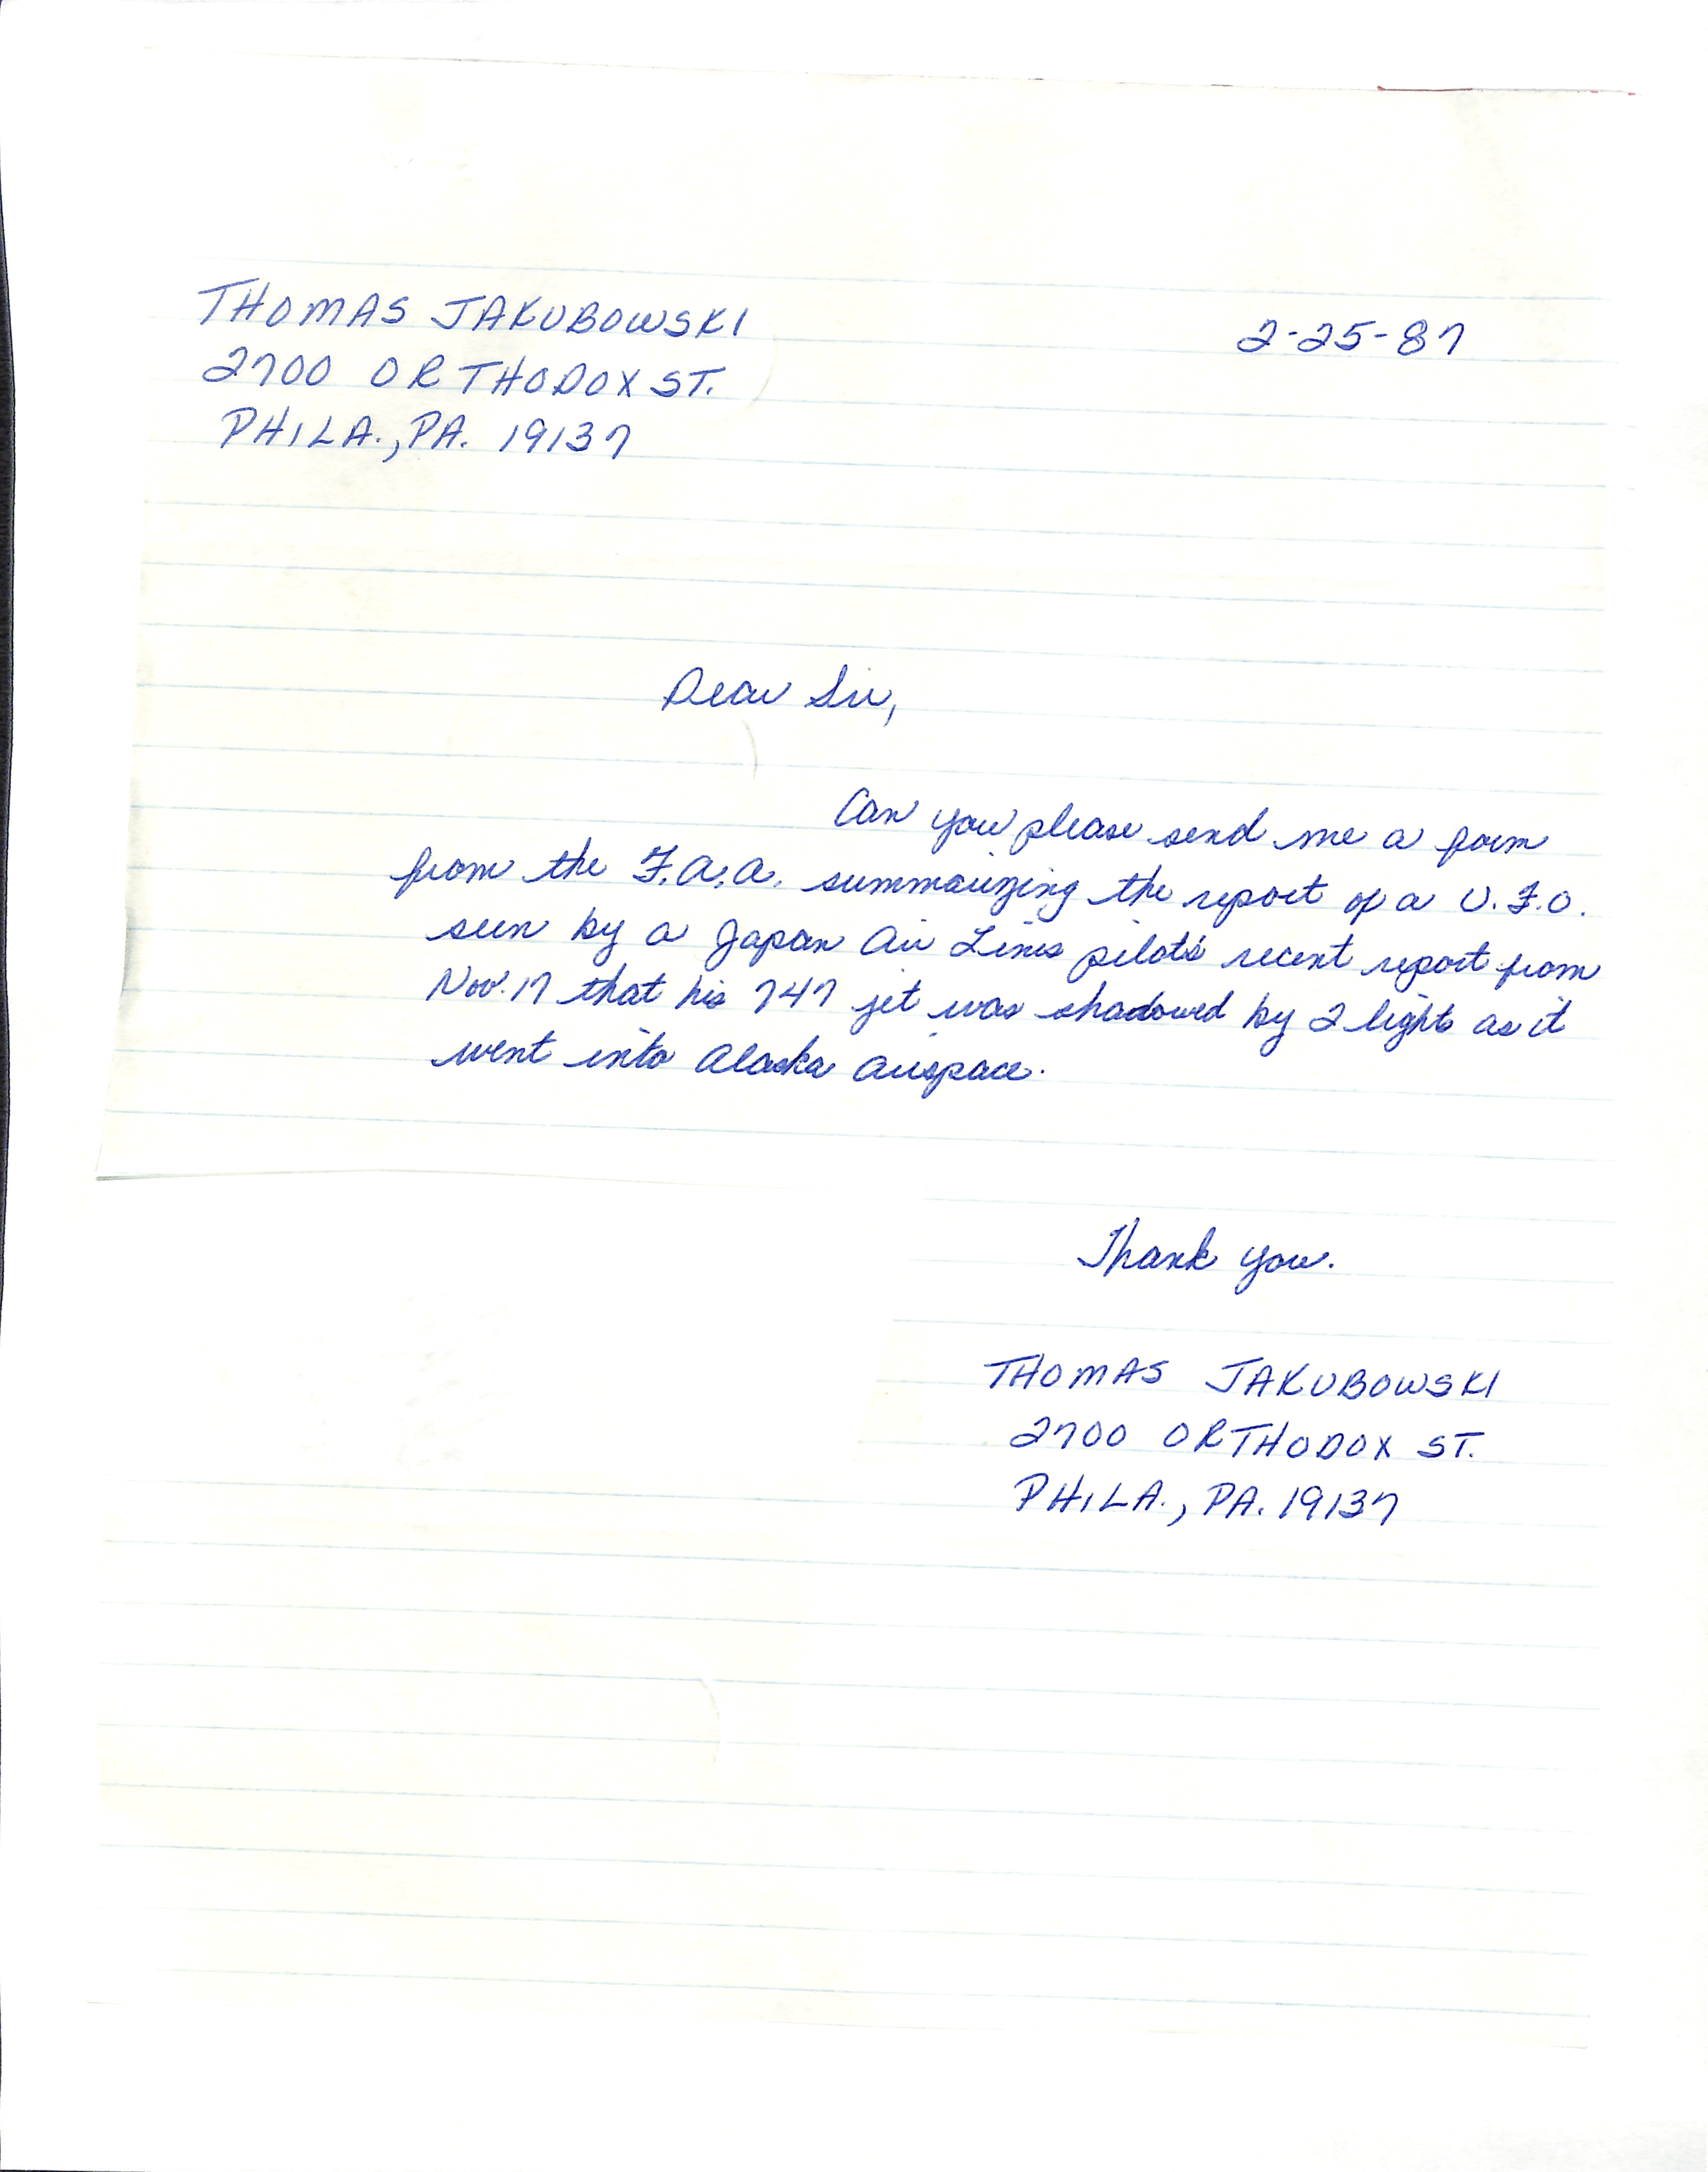 THOMAS JAKUBOWSKI
2-25-87
2700 ORTHODOX ST.
PHILA., PA. 19137
Dear Sir,
Can you please send me a form
from the F.A.A. summarizing the report of a U.F.O.
seen by a Japan Air Lines pilot's recent report from
Nov. 17 that his 747 jet was shadowed by 2 lights as it
went into Alaska airspace.
Thank you.
THOMAS JAKUBOWSKI
2700 ORTHODOX ST.
PHILA., PA. 19137